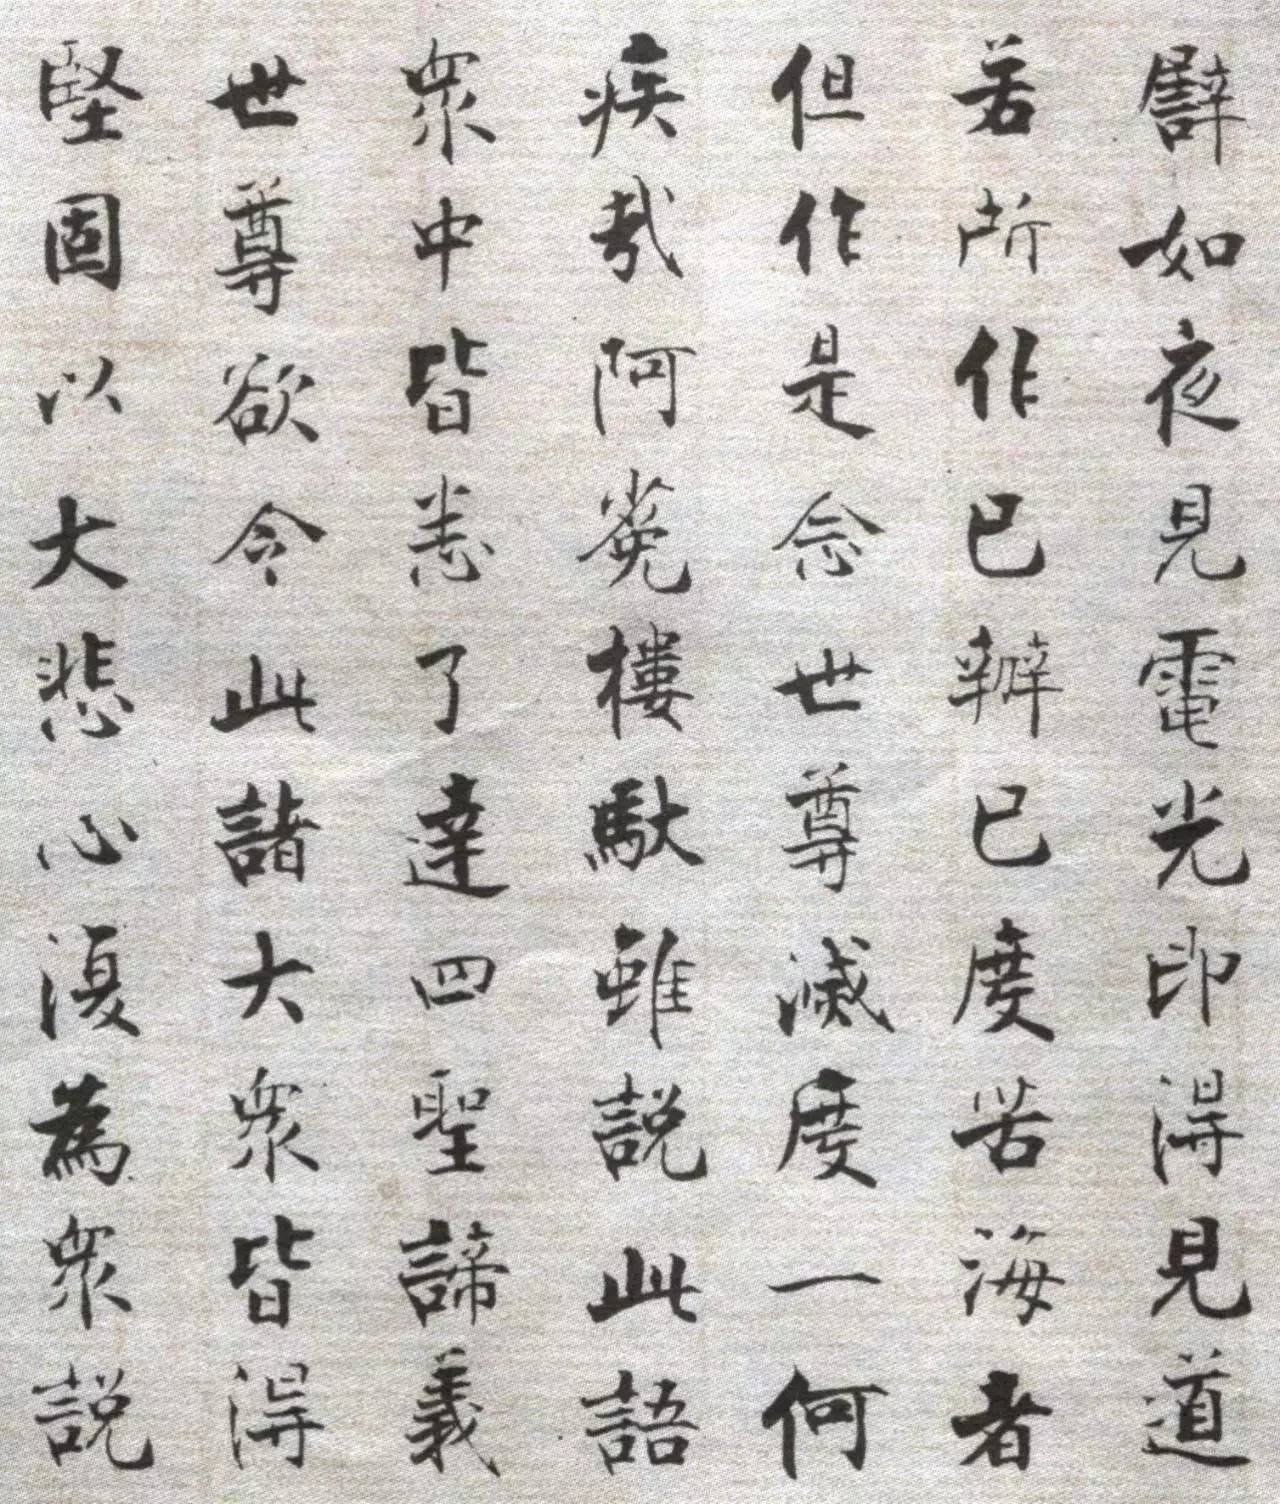 譬如夜見電光即得見道
若所作已辦已度苦海者
但作是念世尊滅度一何
疾哉阿㝹樓馱雖說此語
衆中皆悉了達四聖諦義
世尊欲令此諸大衆皆得
堅固以大悲心復為衆說